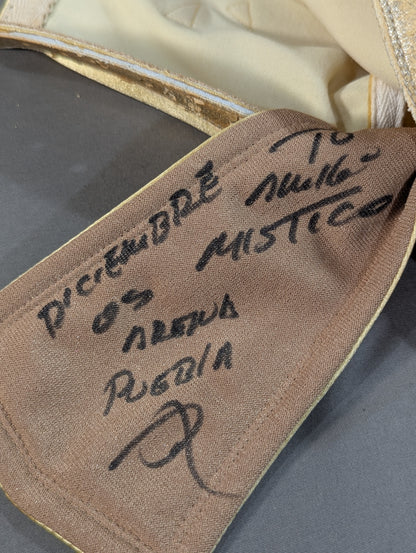 TU
AMIGO
MISTICO
DICIEMBRE
05
ARENA
PUEBLA